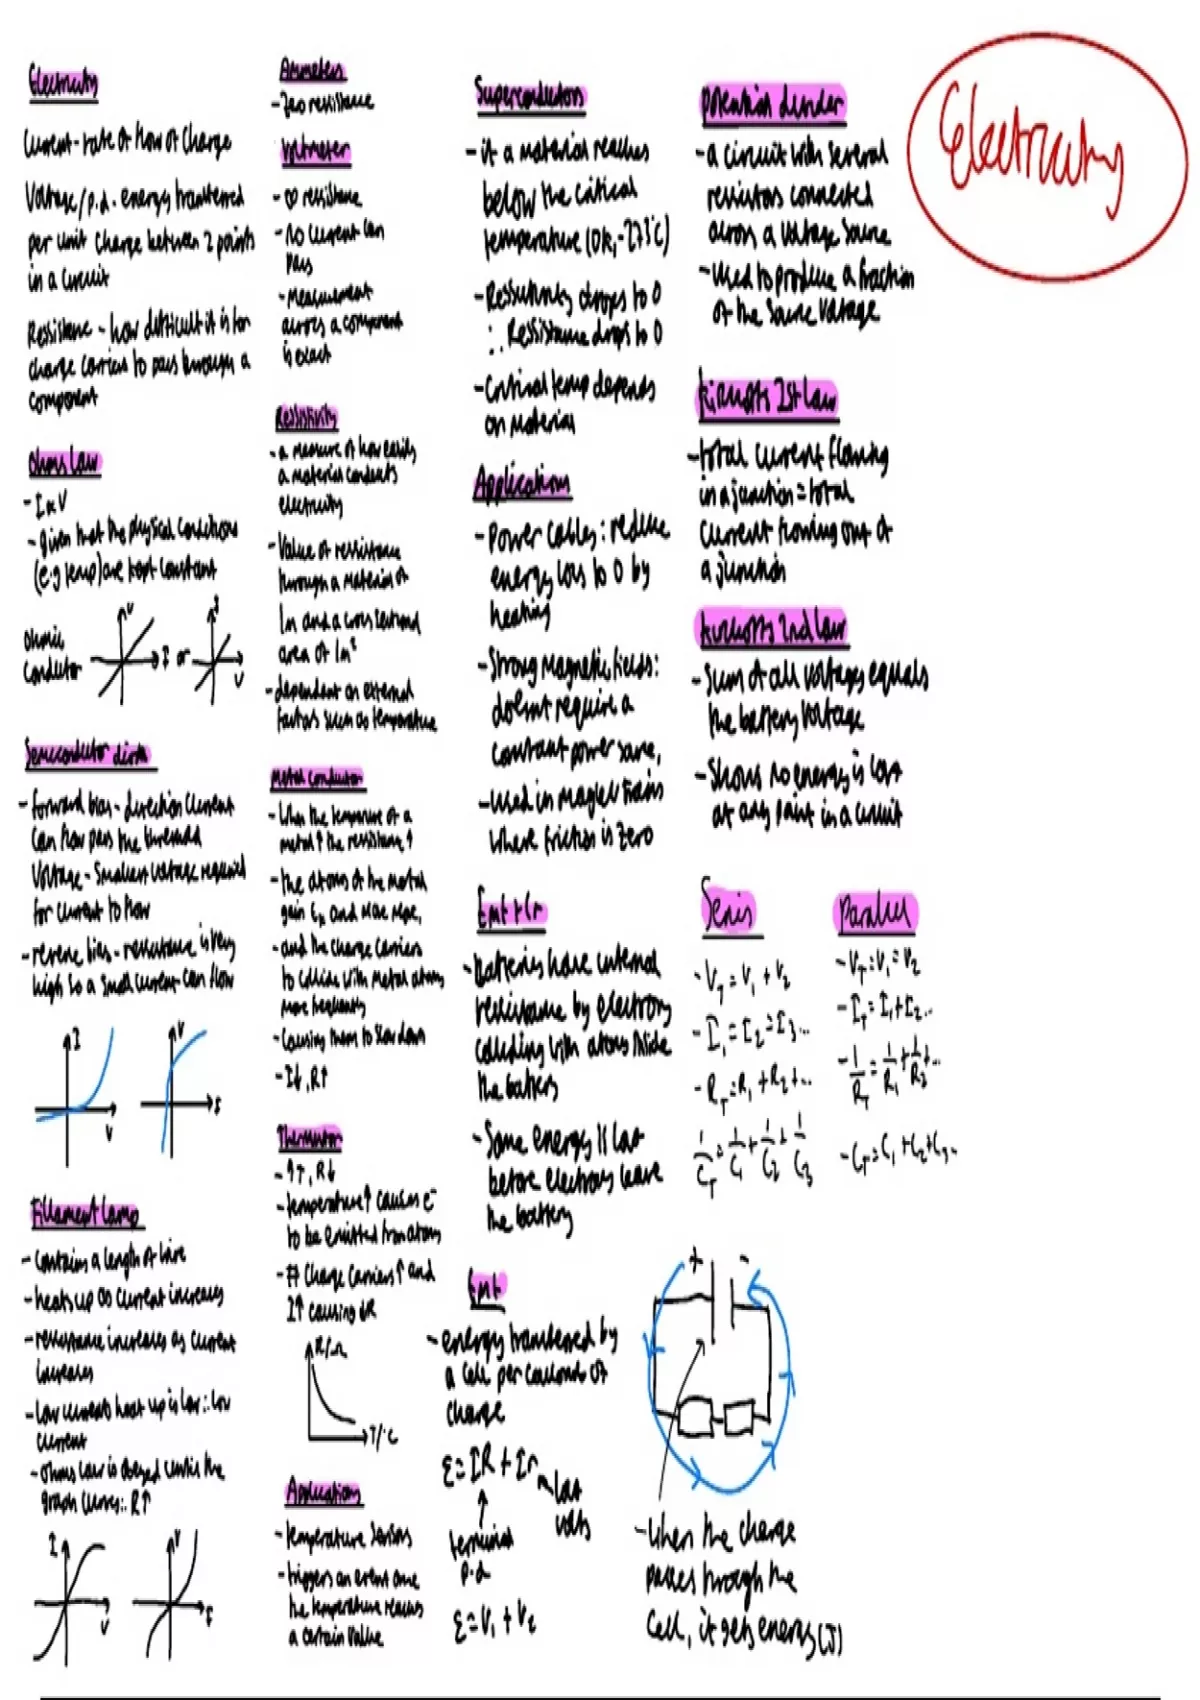 Electricity
Current - rate of flow of charge
Voltage/p.d. energy transferred
per unit charge between 2 points
in a circuit
Resistance - how difficult it is for
charge carriers to pass through a
component
Ohms law
- I∝V
- given that the physical conditions
(e.g temp) are kept constant
ohmic
conductor
V
I
or
I
V
Semiconductor diode
- forward bias - direction current
can flow pass the threshold
voltage - smallest voltage required
for current to flow
- reverse bias - resistance is very
high so a small current can flow
I
V
V
I
Fillament lamp
- contains a length of wire
- heats up as current increases
- resistance increases as current
increases
- low currents heat up is low ∴ low
current
- ohms law is obeyed until the
graph curves ∴ R↑
I
V
V
I
Ammeters
- Zero resistance
Voltmeter
- ∞ resistance
- no current can
pass
- measurement
across a component
is exact
Resistivity
- a measure of how easily
a material conducts
electricity
- Value of resistance
through a material of
1m and a cross sectional
area of 1m²
- dependent on external
factors such as temperature
Metal conductor
- When the temperature of a
metal↑ the resistance↑
- the atoms of the metal
gain Eₖ and move more,
- and the charge carriers
to collide with metal atoms
more frequently
- Causing them to slow down
- I↓, R↑
Thermistor
- ↑T, R↓
- temperature↑ causes e⁻
to be emitted from atoms
- # charge carriers↑ and
I↑ causing ↓R
R/Ω
T/°C
Applications
- temperature sensors
- triggers an event once
the temperature reaches
a certain value
Superconductors
- if a material reaches
below the critical
temperature (0k, -273°c)
- Ressistivity drops to 0
∴ Ressistance drops to 0
- Critical temp depends
on material
Applications
- Power cables: reduce
energy loss to 0 by
heating
- Strong magnetic fields:
doesnt require a
constant power source,
- Used in maglev trains
where friction is zero
Emf + Ir
- batteries have internal
resistance by electrons
colliding with atoms inside
the battery
- Some energy is lost
before electrons leave
the battery
Emf
- energy transferred by
a cell per coulomb of
charge
ε = IR + Ir
lost
volts
terminal
p.d
ε = V₁ + V₂
potential divider
- a circuit with several
resistors connected
across a voltage source
- Used to produce a fraction
of the source voltage
Kirchoffs 1st law
- total current flowing
in a junction = total
current flowing out of
a junction
Kirchoffs 2nd law
- Sum of all voltages equals
the battery voltage
- Shows no energy is lost
at any point in a circuit
Series
- V_T = V₁ + V₂
- I₁ = I₂ = I₃ ...
- R_T = R₁ + R₂ + ...
1/C_T = 1/C₁ + 1/C₂ + 1/C₃
Parallel
- V_T = V₁ = V₂
- I_T = I₁ + I₂ ..
- 1/R_T = 1/R₁ + 1/R₂ + ...
- C_T = C₁ + C₂ + C₃ ..
+ -
- When the charge
passes through the
cell, it gets energy (J)
Electricity